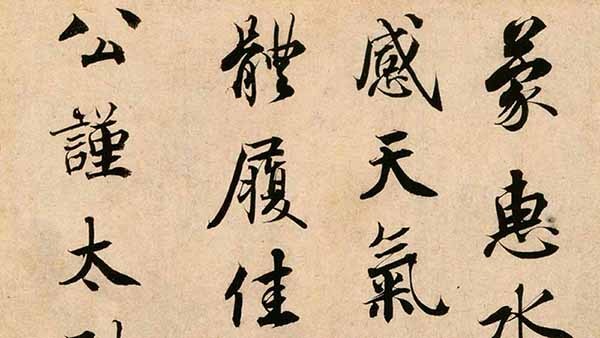 蒙惠水
感天氣
體履佳
公謹太